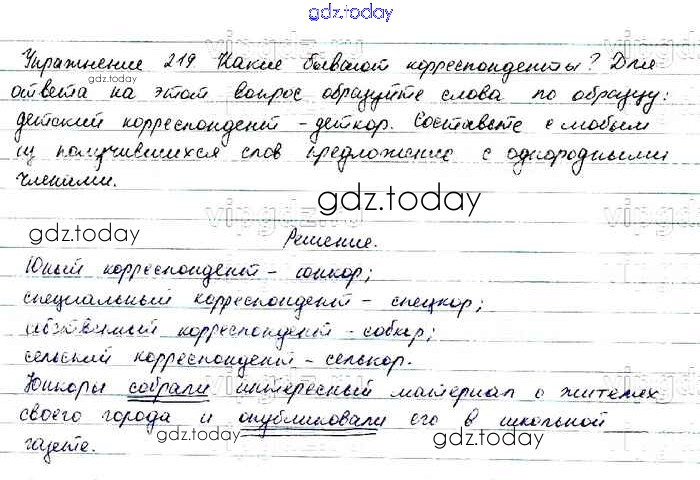 gdz.today
Упражнение 219 Какие бывают корреспонденты? Для
gdz.today
ответа на этот вопрос образуйте слова по образцу:
детский корреспондент - деткор. Составьте с любым
из получившихся слов предложение с однородными
членами.
gdz.today
gdz.today
Решение.
Юный корреспондент - юнкор;
специальный корреспондент - спецкор;
собственный корреспондент - собкор;
сельский корреспондент - селькор.
Юнкоры собрали интересный материал о жителях
своего города и опубликовали его в школьной
gdz.today
gdz.today
газете.